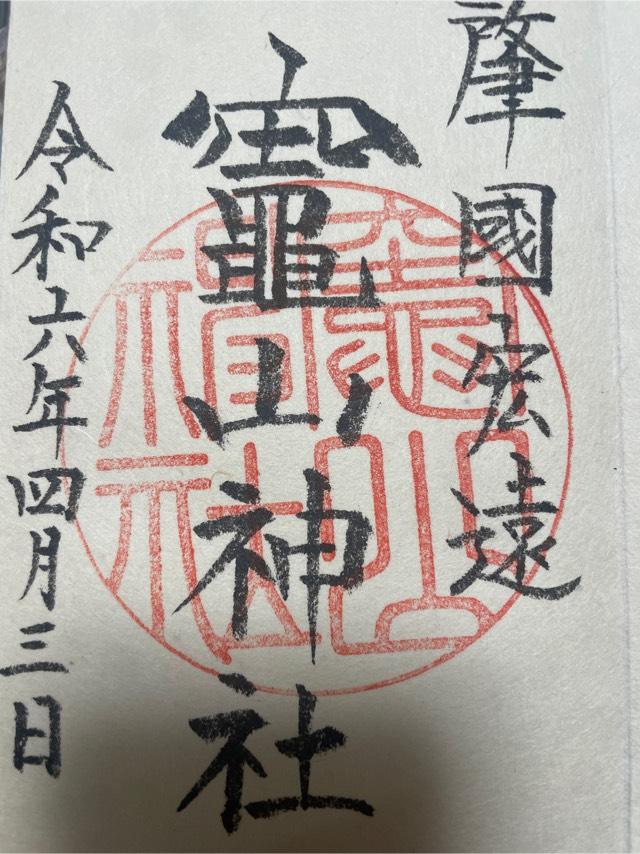 肇國宏遠
竈山神社
令和六年四月三日